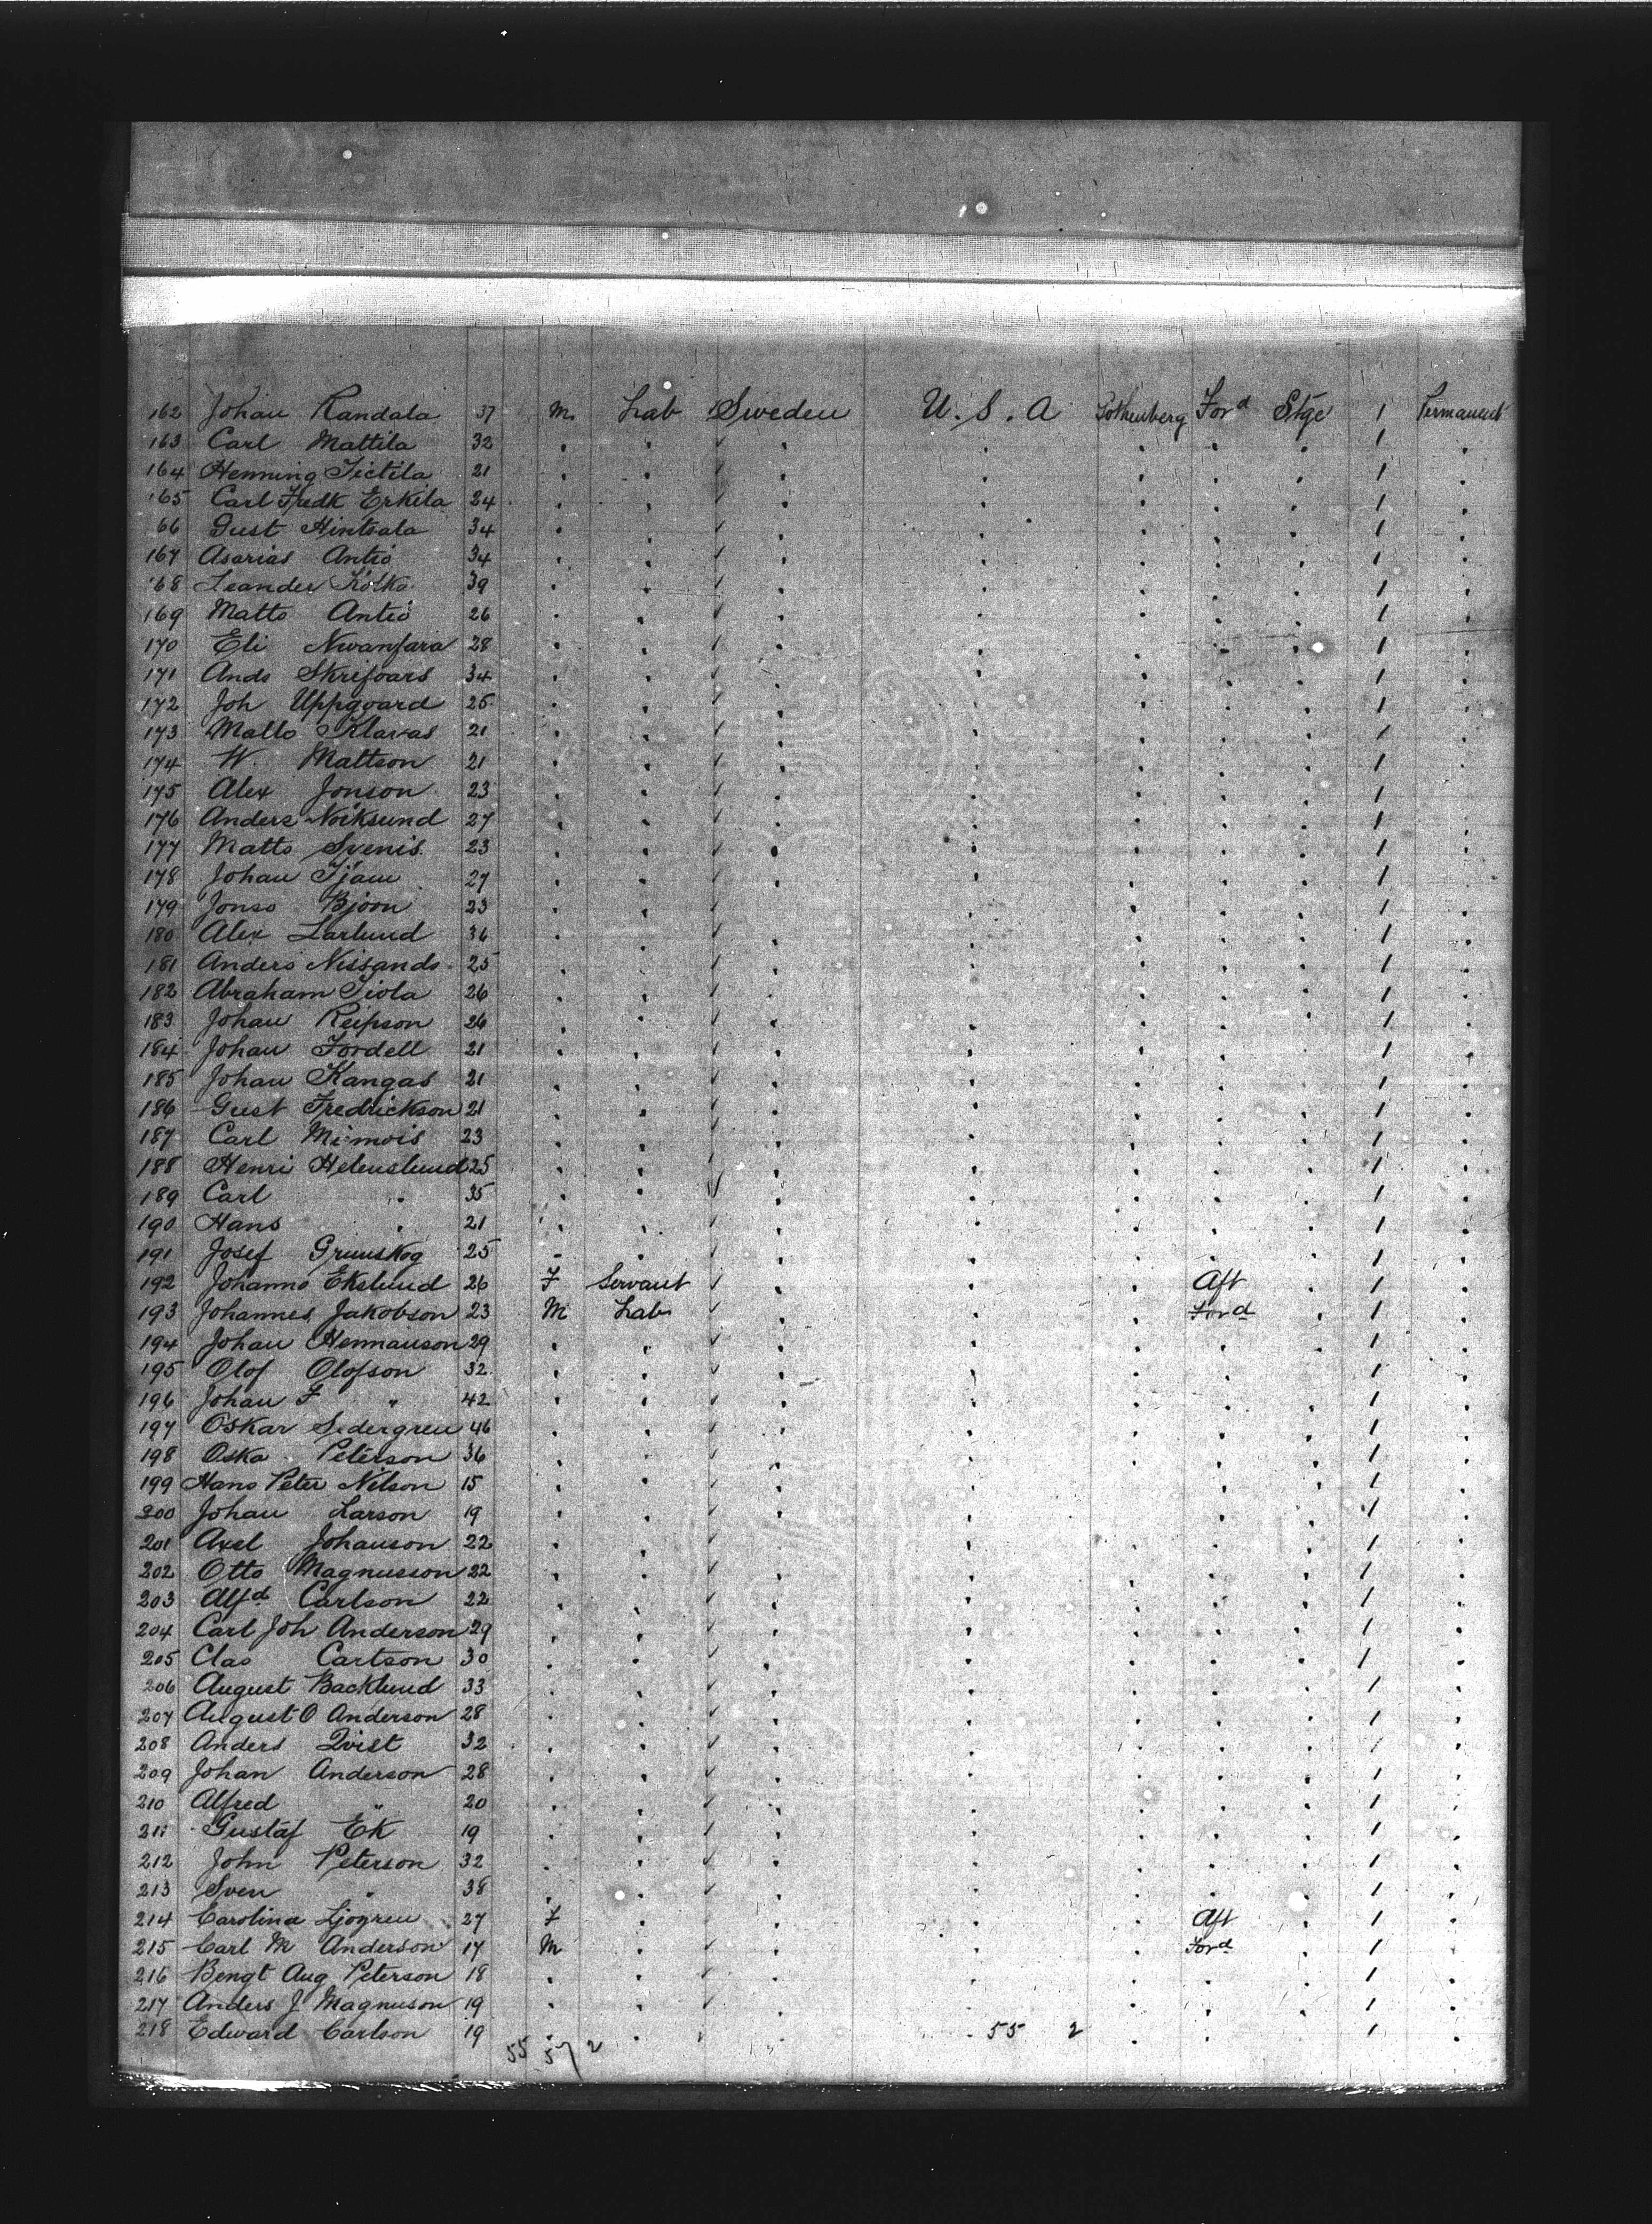 162 Johan Randala 37 M. Lab Sweden U. S. A Gothenberg Ford Stge 1 Permanent
163 Carl Mattila 32 . . . . . . . 1 .
164 Henning Tictila 21 . . . . . . . 1 .
165 Carl Fredk Erkila 24 . . . . . . . 1 .
66 Gust Hintsala 34 . . . . . . . 1 .
167 Asarias Antio 34 . . . . . . . 1 .
168 Leander Kolko 39 . . . . . . . 1 .
169 Matts Antio 26 . . . . . . . 1 .
170 Eli 28 . . . . . . . 1 .
171 Ands Skrifvars 34 . . . . . . . 1 .
172 Joh Uppgoard 25 . . . . . . . 1 .
173 Matts Klavas 21 . . . . . . . 1 .
174 W. Mattson 21 . . . . . . . 1 .
175 Alex Jonson 23 . . . . . . . 1 .
176 Anders Norksund 27 . . . . . . . 1 .
177 Matts Svenis 23 . . . . . . . 1 .
178 Johan 27 . . . . . . . 1 .
179 Jonso Bjoon 23 . . . . . . . 1 .
180 Alex Larlund 36 . . . . . . . 1 .
181 Anders Nissands 25 . . . . . . . 1 .
182 Abraham Tiola 26 . . . . . . . 1 .
183 Johan Reipson 26 . . . . . . . 1 .
184 Johan Fordell 21 . . . . . . . 1 .
185 Johan Kangas 21 . . . . . . . 1 .
186 Gust Fredrickson 21 . . . . . . . 1 .
187 Carl Mimois 23 . . . . . . . 1 .
188 Henri Helenslund 25 . . . . . . . 1 .
189 Carl " 35 . . . . . . . 1 .
190 Hans " 21 . . . . . . . 1 .
191 Josef Grunskog 25 . . . . . . . 1 .
192 Johanna Ekslund 26 F Servant . . . Aft . 1 .
193 Johannes Jakobson 23 M Lab . . . Ford . 1 .
194 Johan Hermanson 29 . . . . . . . 1 .
195 Olof Olofson 32 . . . . . . . 1 .
196 Johan F " 42 . . . . . . . 1 .
197 Oskar Sedergren 46 . . . . . . . 1 .
198 Oska Peterson 36 . . . . . . . 1 .
199 Hans Peter Nilson 15 . . . . . . . 1 .
200 Johan Larson 19 . . . . . . . 1 .
201 Axel Johanson 22 . . . . . . . 1 .
202 Otto Magnusson 22 . . . . . . . 1 .
203 Alfd Carlson 22 . . . . . . . 1 .
204 Carl Joh Anderson 29 . . . . . . . 1 .
205 Clas Carlson 30 . . . . . . . 1 .
206 August Backlund 33 . . . . . . . 1 .
207 August O Anderson 28 . . . . . . . 1 .
208 Anders Qvist 32 . . . . . . . 1 .
209 Johan Anderson 28 . . . . . . . 1 .
210 Alfred " 20 . . . . . . . 1 .
211 Gustaf Ek 19 . . . . . . . 1 .
212 John Peterson 32 . . . . . . . 1 .
213 Sven " 38 . . . . . . . 1 .
214 Carolina Ljogren 27 F . . . . Aft . 1 .
215 Carl M Anderson 17 M . . . . Ford . 1 .
216 Bengt Aug Peterson 18 . . . . . . . 1 .
217 Anders J Magnuson 19 . . . . . . . 1 .
218 Edward Carlson 19 . . . 55 2 . . . 1 .
55 57 2